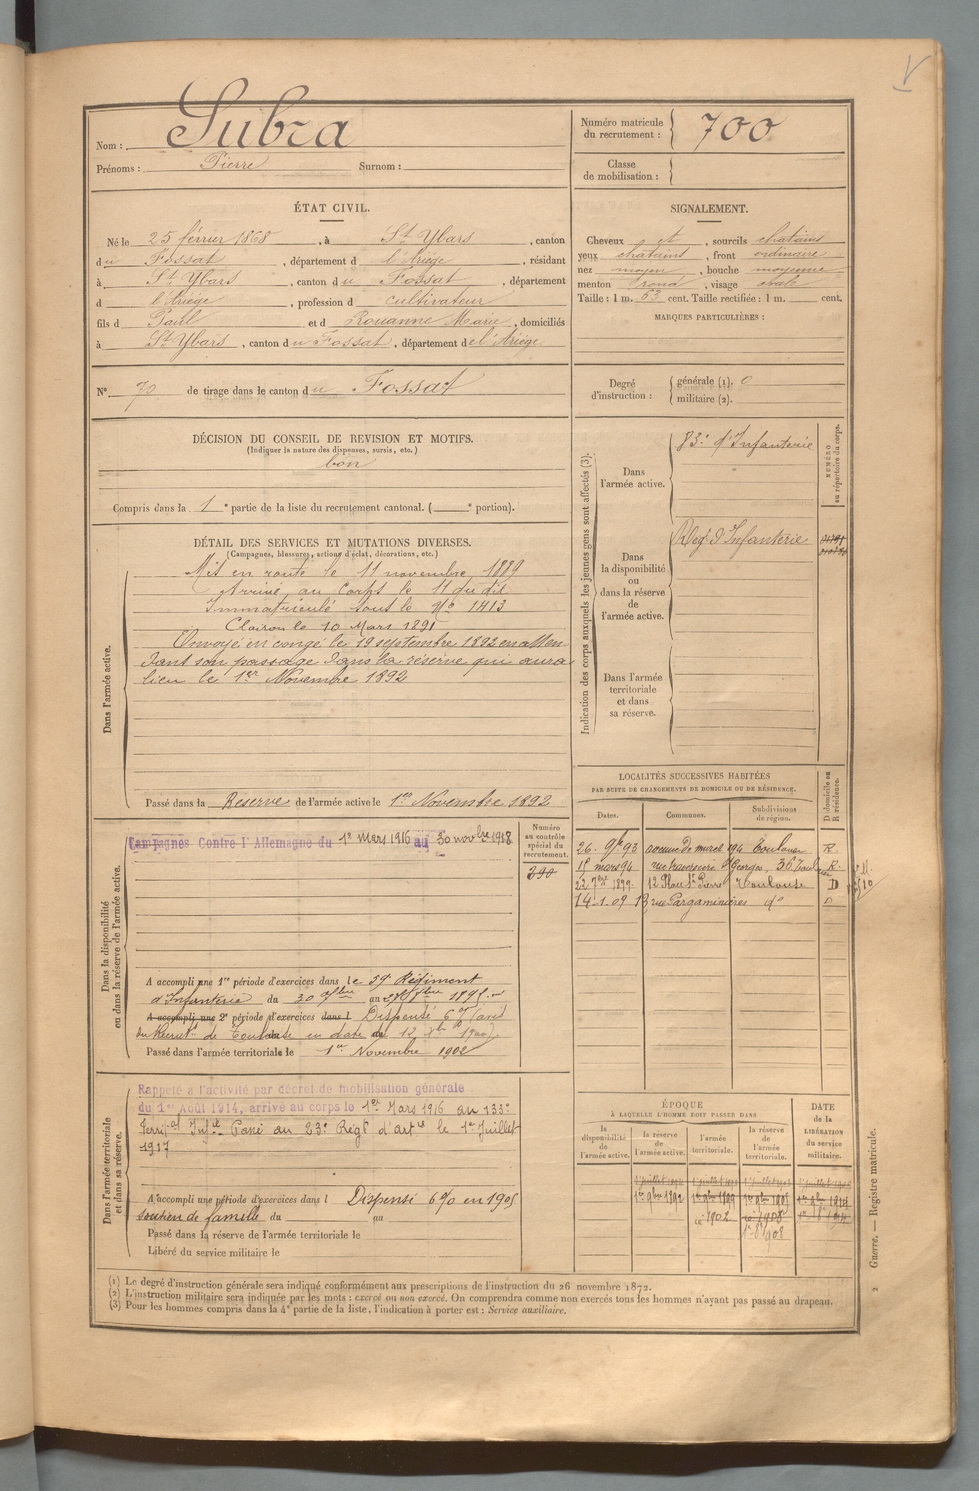 Nom : Subra
Prénoms : Pierre Surnom :
Numéro matricule du recrutement : 700
Classe de mobilisation :
ÉTAT CIVIL.
Né le 25 février 1868, à St Ybars, canton
du Fossat, département d l'Ariège, résidant
à St Ybars, canton du Fossat, département
d l'Ariège, profession d cultivateur
fils d Paul et d Rouanne Marie, domiciliés
à St Ybars, canton du Fossat, département de l'Ariège
SIGNALEMENT.
Cheveux et, sourcils chatains
yeux chatains, front ordinaire
nez moyen, bouche moyenne
menton rond, visage ovale
Taille : 1 m. 63 cent. Taille rectifiée : 1 m. cent.
MARQUES PARTICULIÈRES :
N° 70 de tirage dans le canton du Fossat
Degré d'instruction : générale (1). 0
militaire (2).
DÉCISION DU CONSEIL DE REVISION ET MOTIFS.
(Indiquer la nature des dispenses, sursis, etc.)
bon
Compris dans la 1e partie de la liste du recrutement cantonal. ( e portion).
DÉTAIL DES SERVICES ET MUTATIONS DIVERSES.
(Campagnes, blessures, actions d'éclat, décorations, etc.)
Dans l'armée active.
Mis en route le 11 novembre 1889
Arrivé au Corps le 11 du dit
Immatriculé sous le N° 1413
Clairon le 10 Mars 1891
Envoyé en congé le 19 septembre 1892 en atten-
dant son passage dans la réserve qui aura
lieu le 1er Novembre 1892
Passé dans la Réserve de l'armée active le 1er Novembre 1892
Indication des corps auxquels les jeunes gens sont affectés (3).
NUMÉRO au répertoire du corps.
Dans l'armée active.
83e d'Infanterie
Dans la disponibilité ou dans la réserve de l'armée active.
Regt d'Infanterie
Dans l'armée territoriale et dans sa réserve.
Dans la disponibilité ou dans la réserve de l'armée active.
Numéro au contrôle spécial du recrutement.
290
Campagnes Contre l'Allemagne du 1er Mars 1916 au 30 novbre 1918
A accompli une 1re période d'exercices dans le 59e Régiment
d'Infanterie du 30 7bre au 1895
A accompli une 2e période d'exercices dans l Dispensé 6% (avis
du Recrutt de Toulouse en date du 12 1900)
Passé dans l'armée territoriale le 1er Novembre 1902
LOCALITÉS SUCCESSIVES HABITÉES
PAR SUITE DE CHANGEMENTS DE DOMICILE OU DE RÉSIDENCE.
Dates. Communes. Subdivisions de région. D domicile ou R résidence.
26. 9bre 93 avenue de muret 194 Toulouse R
15 mars 94 rue traversière St Georges, 36 Toulouse R.
12 Place St Pierre Toulouse D
14-1.09 13 rue Pargaminières do D
Dans l'armée territoriale et dans sa réserve.
Rappelé à l'activité par décret de mobilisation générale
du 1er Août 1914, arrivé au corps le 1er Mars 1916 au 133e
Territal Infie Passé au 23e Régt d'artie le 1er Juillet
1917
A accompli une période d'exercices dans l Dispensé 6% en 1905
soutien de famille du au
Passé dans la réserve de l'armée territoriale le
Libéré du service militaire le
ÉPOQUE
À LAQUELLE L'HOMME DOIT PASSER DANS
la disponibilité de l'armée active. la réserve de l'armée active. l'armée territoriale. la réserve de l'armée territoriale.
DATE de la LIBÉRATION du service militaire.
1er 9bre 1892 1er 9bre 1899
1902 1908
(1) Le degré d'instruction générale sera indiqué conformément aux prescriptions de l'instruction du 26 novembre 1872.
(2) L'instruction militaire sera indiquée par les mots : exercé ou non exercé. On comprendra comme non exercés tous les hommes n'ayant pas passé au drapeau.
(3) Pour les hommes compris dans la 4e partie de la liste, l'indication à porter est : Service auxiliaire.
Guerre. — Registre matricule.
2